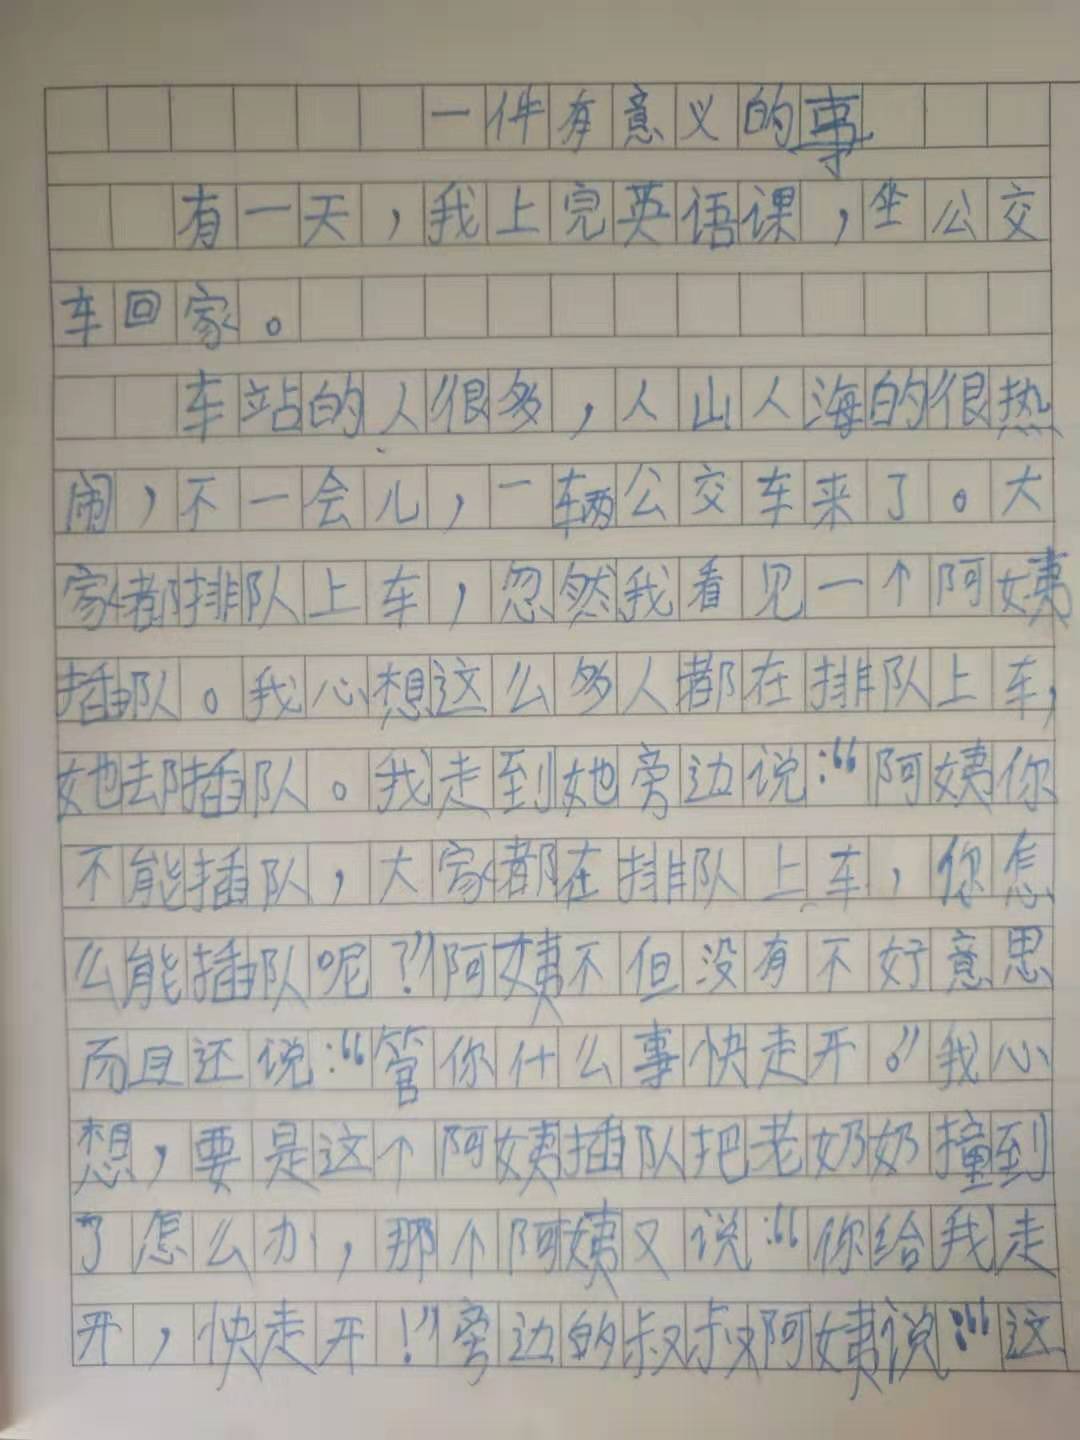 一件有意义的事
有一天，我上完英语课，坐公交
车回家。
车站的人很多，人山人海的很热
闹，不一会儿，一辆公交车来了。大
家都排队上车，忽然我看见一个阿姨
插队。我心想这么多人都在排队上车，
她去插队。我走到她旁边说：“阿姨你
不能插队，大家都在排队上车，你怎
么能插队呢？”阿姨不但没有不好意思
而且还说：“管你什么事快走开。”我心
想，要是这个阿姨插队把老奶奶撞到
了怎么办，那个阿姨又说：“你给我走
开，快走开！”旁边的叔叔阿姨说：“这